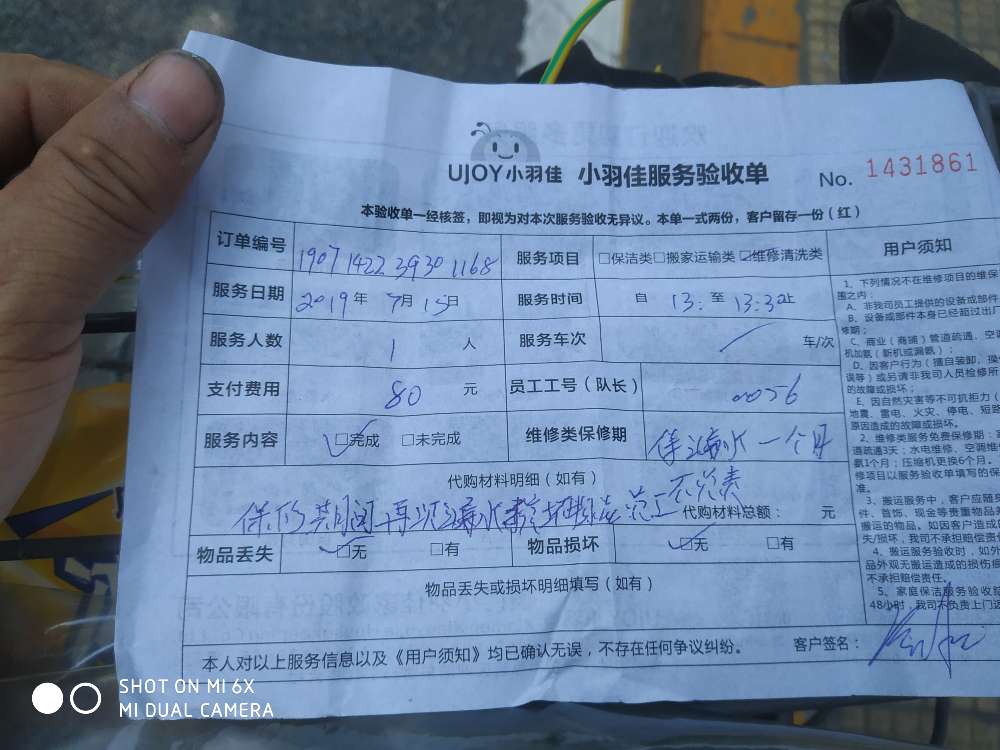 UJOY小羽佳 小羽佳服务验收单 No. 1431861
本验收单一经核签，即视为对本次服务验收无异议。本单一式两份，客户留存一份（红）
订单编号 1907 1422 3930 1168 服务项目 □保洁类□搬家运输类☑维修清洗类
服务日期 2019年 7月 15日 服务时间 自 13: 至 13:32止
服务人数 1 人 服务车次 / 车/次
支付费用 80 元 员工工号（队长） 00056
服务内容 ☑完成 □未完成 维修类保修期 保 漏水一个月
代购材料明细（如有）
保 期间再次漏水 员工不 代购材料总额： 元
物品丢失 ☑无 □有 物品损坏 ☑无 □有
物品丢失或损坏明细填写（如有）
本人对以上服务信息以及《用户须知》均已确认无误，不存在任何争议纠纷。 客户签名：
用户须知
1、下列情况不在维修项目的维保
围之内：
A、非我司员工提供的设备或部件
B、设备或部件本身已经超过出厂
修期；
C、商业（商铺）管道疏通、空调
机加氨（新机或漏氨）；
D、因客户行为（擅自装卸，操
误等）或另请非我司人员检修所
的故障或损坏；
E、因自然灾害等不可抗拒力（
地震、雷电、火灾、停电、短路
原因造成的故障或损坏。
2、维修类服务免费保修期：
道疏通3天；水电维修、空调维
氨1个月；压缩机更换6个月。
修项目以服务验收单填写的保
准。
3、搬运服务中，客户应随身
件、首饰、现金等贵重物品
搬运的物品。如因客户造成
失/损坏，我司不承担赔偿责
4、搬运服务验收时，如外
品外观无搬运造成的损伤痕
不承担赔偿责任。
5、家庭保洁服务验收
48小时，我司不负责上门
SHOT ON MI 6X
MI DUAL CAMERA